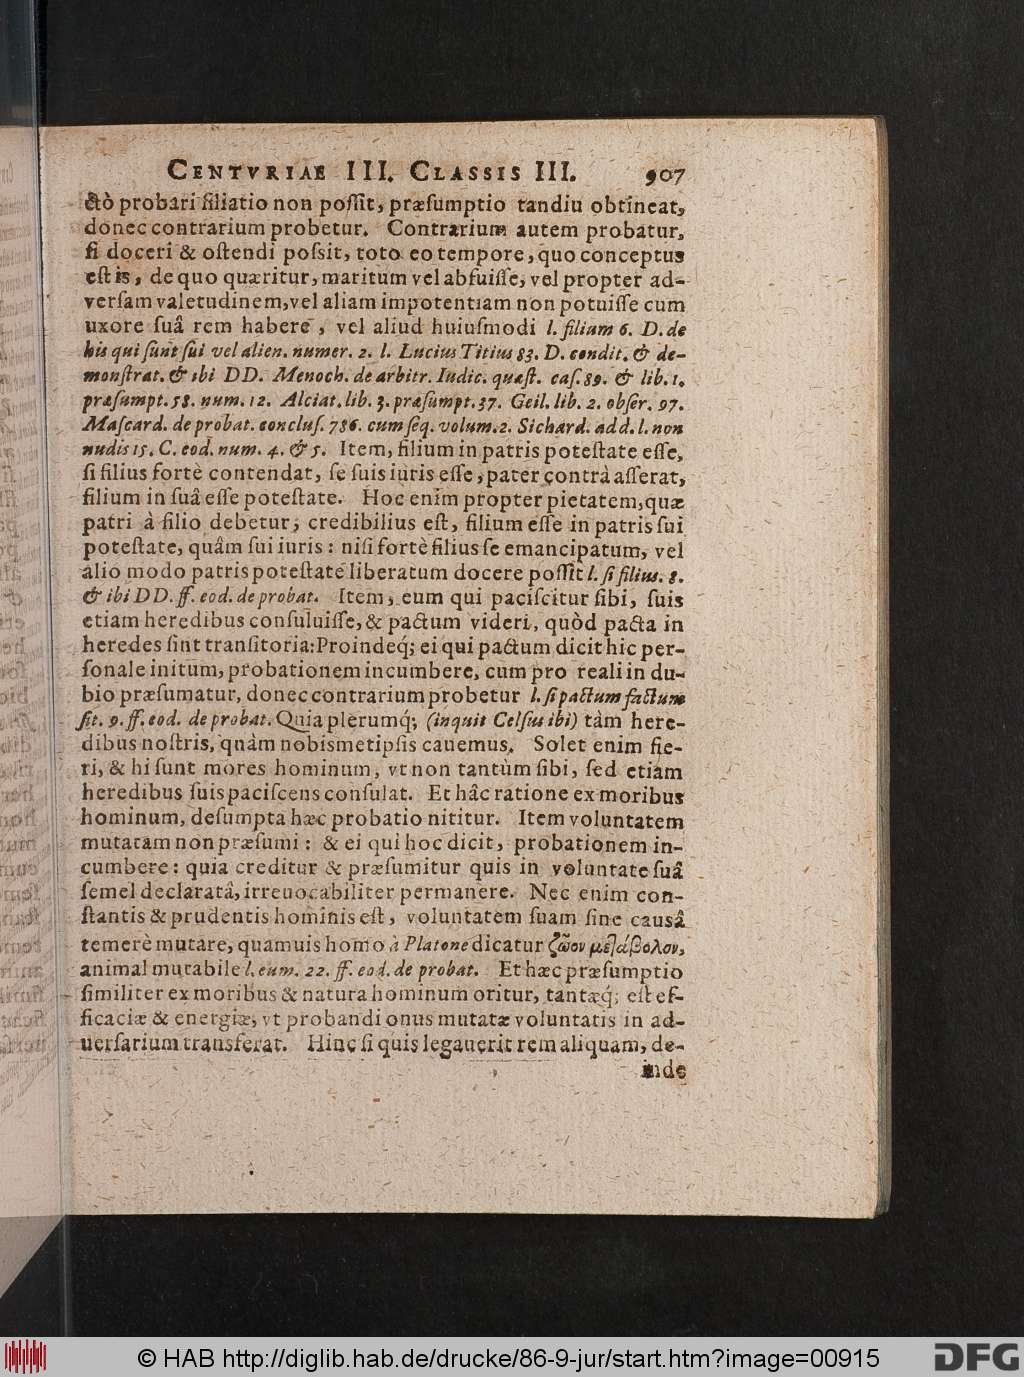 CENTVRIAE III. CLASSIS III. 907
ctò probari filiatio non poſſit, præſumptio tandiu obtineat,
donec contrarium probetur. Contrarium autem probatur,
ſi doceri & oſtendi poſsit, toto eo tempore, quo conceptus
eſt is, de quo quæritur, maritum vel abfuiſſe, vel propter ad-
verſam valetudinem, vel aliam impotentiam non potuiſſe cum
uxore ſuâ rem habere, vel aliud huiuſmodi l. filium 6. D. de
his qui ſunt ſui vel alien. numer. 2. l. Lucius Titius 83. D. condit. & de-
monſtrat. & ibi DD. Menoch. de arbitr. Iudic. quæſt. caſ. 89. & lib. 1.
præſumpt. 58. num. 12. Alciat. lib. 3. præſumpt. 37. Geil. lib. 2. obſer. 97.
Maſcard. de probat. concluſ. 786. cum ſeq. volum. 2. Sichard. add. l. non
nudis 15. C. eod. num. 4. & 5. Item, filium in patris poteſtate eſſe,
ſi filius fortè contendat, ſe ſui iuris eſſe, pater contrà aſſerat,
filium in ſuâ eſſe poteſtate. Hoc enim propter pietatem, quæ
patri à filio debetur, credibilius eſt, filium eſſe in patris ſui
poteſtate, quâm ſui iuris: niſi fortè filius ſe emancipatum, vel
alio modo patris poteſtate liberatum docere poſſit l. ſi filius. 8.
& ibi DD. ff. eod. de probat. Item, eum qui paciſcitur ſibi, ſuis
etiam heredibus conſuluiſſe, & pactum videri, quòd pacta in
heredes ſint tranſitoria: Proindeq́; ei qui pactum dicit hic per-
ſonale initum, probationem incumbere, cum pro reali in du-
bio præſumatur, donec contrarium probetur l. ſi pactum factum
ſit. 9. ff. eod. de probat. Quia plerumq́; (inquit Celſus ibi) tàm here-
dibus noſtris, quàm nobismetipſis cauemus. Solet enim fie-
ri, & hi ſunt mores hominum, vt non tantùm ſibi, ſed etiam
heredibus ſuis paciſcens conſulat. Et hâc ratione ex moribus
hominum, deſumpta hæc probatio nititur. Item voluntatem
mutatam non præſumi: & ei qui hoc dicit, probationem in-
cumbere: quia creditur & præſumitur quis in voluntate ſuâ
ſemel declaratâ, irreuocabiliter permanere. Nec enim con-
ſtantis & prudentis hominis eſt, voluntatem ſuam ſine causâ
temerè mutare, quamuis homo à Platone dicatur ζῶον μεταβολον,
animal mutabile l. eum. 22. ff. eod. de probat. Et hæc præſumptio
ſimiliter ex moribus & natura hominum oritur, tantæq́; eſt ef-
ficaciæ & energiæ, vt probandi onus mutatæ voluntatis in ad-
uerſarium transferat. Hinc ſi quis legauerit rem aliquam, de-
inde
© HAB http://diglib.hab.de/drucke/86-9-jur/start.htm?image=00915
DFG